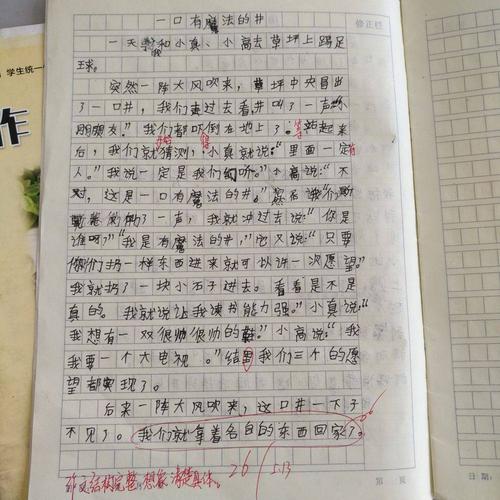 学生统一
作
修正栏
一口有魔法的井
一天我和小真、小高去草坪上踢足
球。
突然一阵大风吹来,草坪中央冒出
了一口井,我们走过去看,井叫了一声"小
朋友。"我们都吓倒在地上了。等站起来
后,我们就开始猜测,小真就说:"里面一定有
人。"我说一定是我们幻听。"小高说:"不
对,这是一口有魔法的井。"然后
了一声,我就冲过去说:"你是
谁呀?""我是有魔法的井,"它又说:"只要
你们扔一样东西进来就可以许一次愿望。"
我就扔了一块小石子进去。看看是不是
真的。我就说让我读书能力强。"小真说:"
我想有一双很帅很帅的鞋。"小高说:"我
我要一个大电视。"结果我们三个的愿
望都实现了。
后来一阵大风吹来,这口井一下子
不见了。我们就拿着各自的东西回家了。
作文结构完整,想象清楚具体。
26
5.13
第 页
日期: